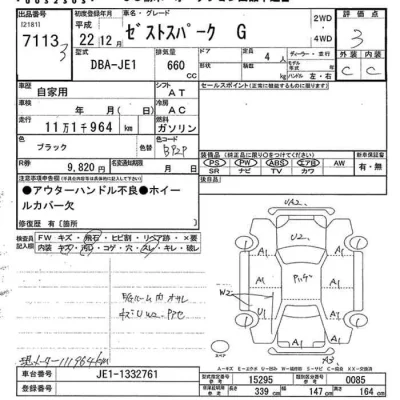 出品番号
[2181]
7113 3
初度登録年月
平成
22年12月
車名・グレード
ゼストスパーク G
2WD
4WD
評価点
3
型式
DBA-JE1
排気量
660
cc
ドア
形状
定員
4 人
積載量
kg
ディーラー・並行
モデル年式
年
ハンドル 左・右
外装 内装
C C
車歴
自家用
シフト
AT
セールスポイント(正常に機能するものに限ります)
車検
年 月( 日)
冷房
AC
走行
11万1千964 km
燃料
ガソリン
色
ブラック
色替
色コード
B92P
R券
9,820 円
名変通知期限
月 日
装備品(純正品に限り○をつけてください)
PS PW ABS エアB AW
SR ナビ TV カワ
新車保証書
有・無
注意事項申告欄
●アウターハンドル不良●ホイー
ルカバー欠
修復歴 有〔箇所 〕
後日品
検査員
記入欄
FW キズ・飛石・ヒビ割・リペア跡・×要
内装 キズ・汚・コゲ・穴・スレ・キレ・破レ
UA2
U2
A1
A1
A1
A1
W2
U1
A1
A3
スペア
現メーター111964km
A-キズ
車台番号
JE1-1332761
登録番号
型式指定番号
15295
類別区分番号
0085
長さ
339 cm
幅
147 cm
高さ
164 cm